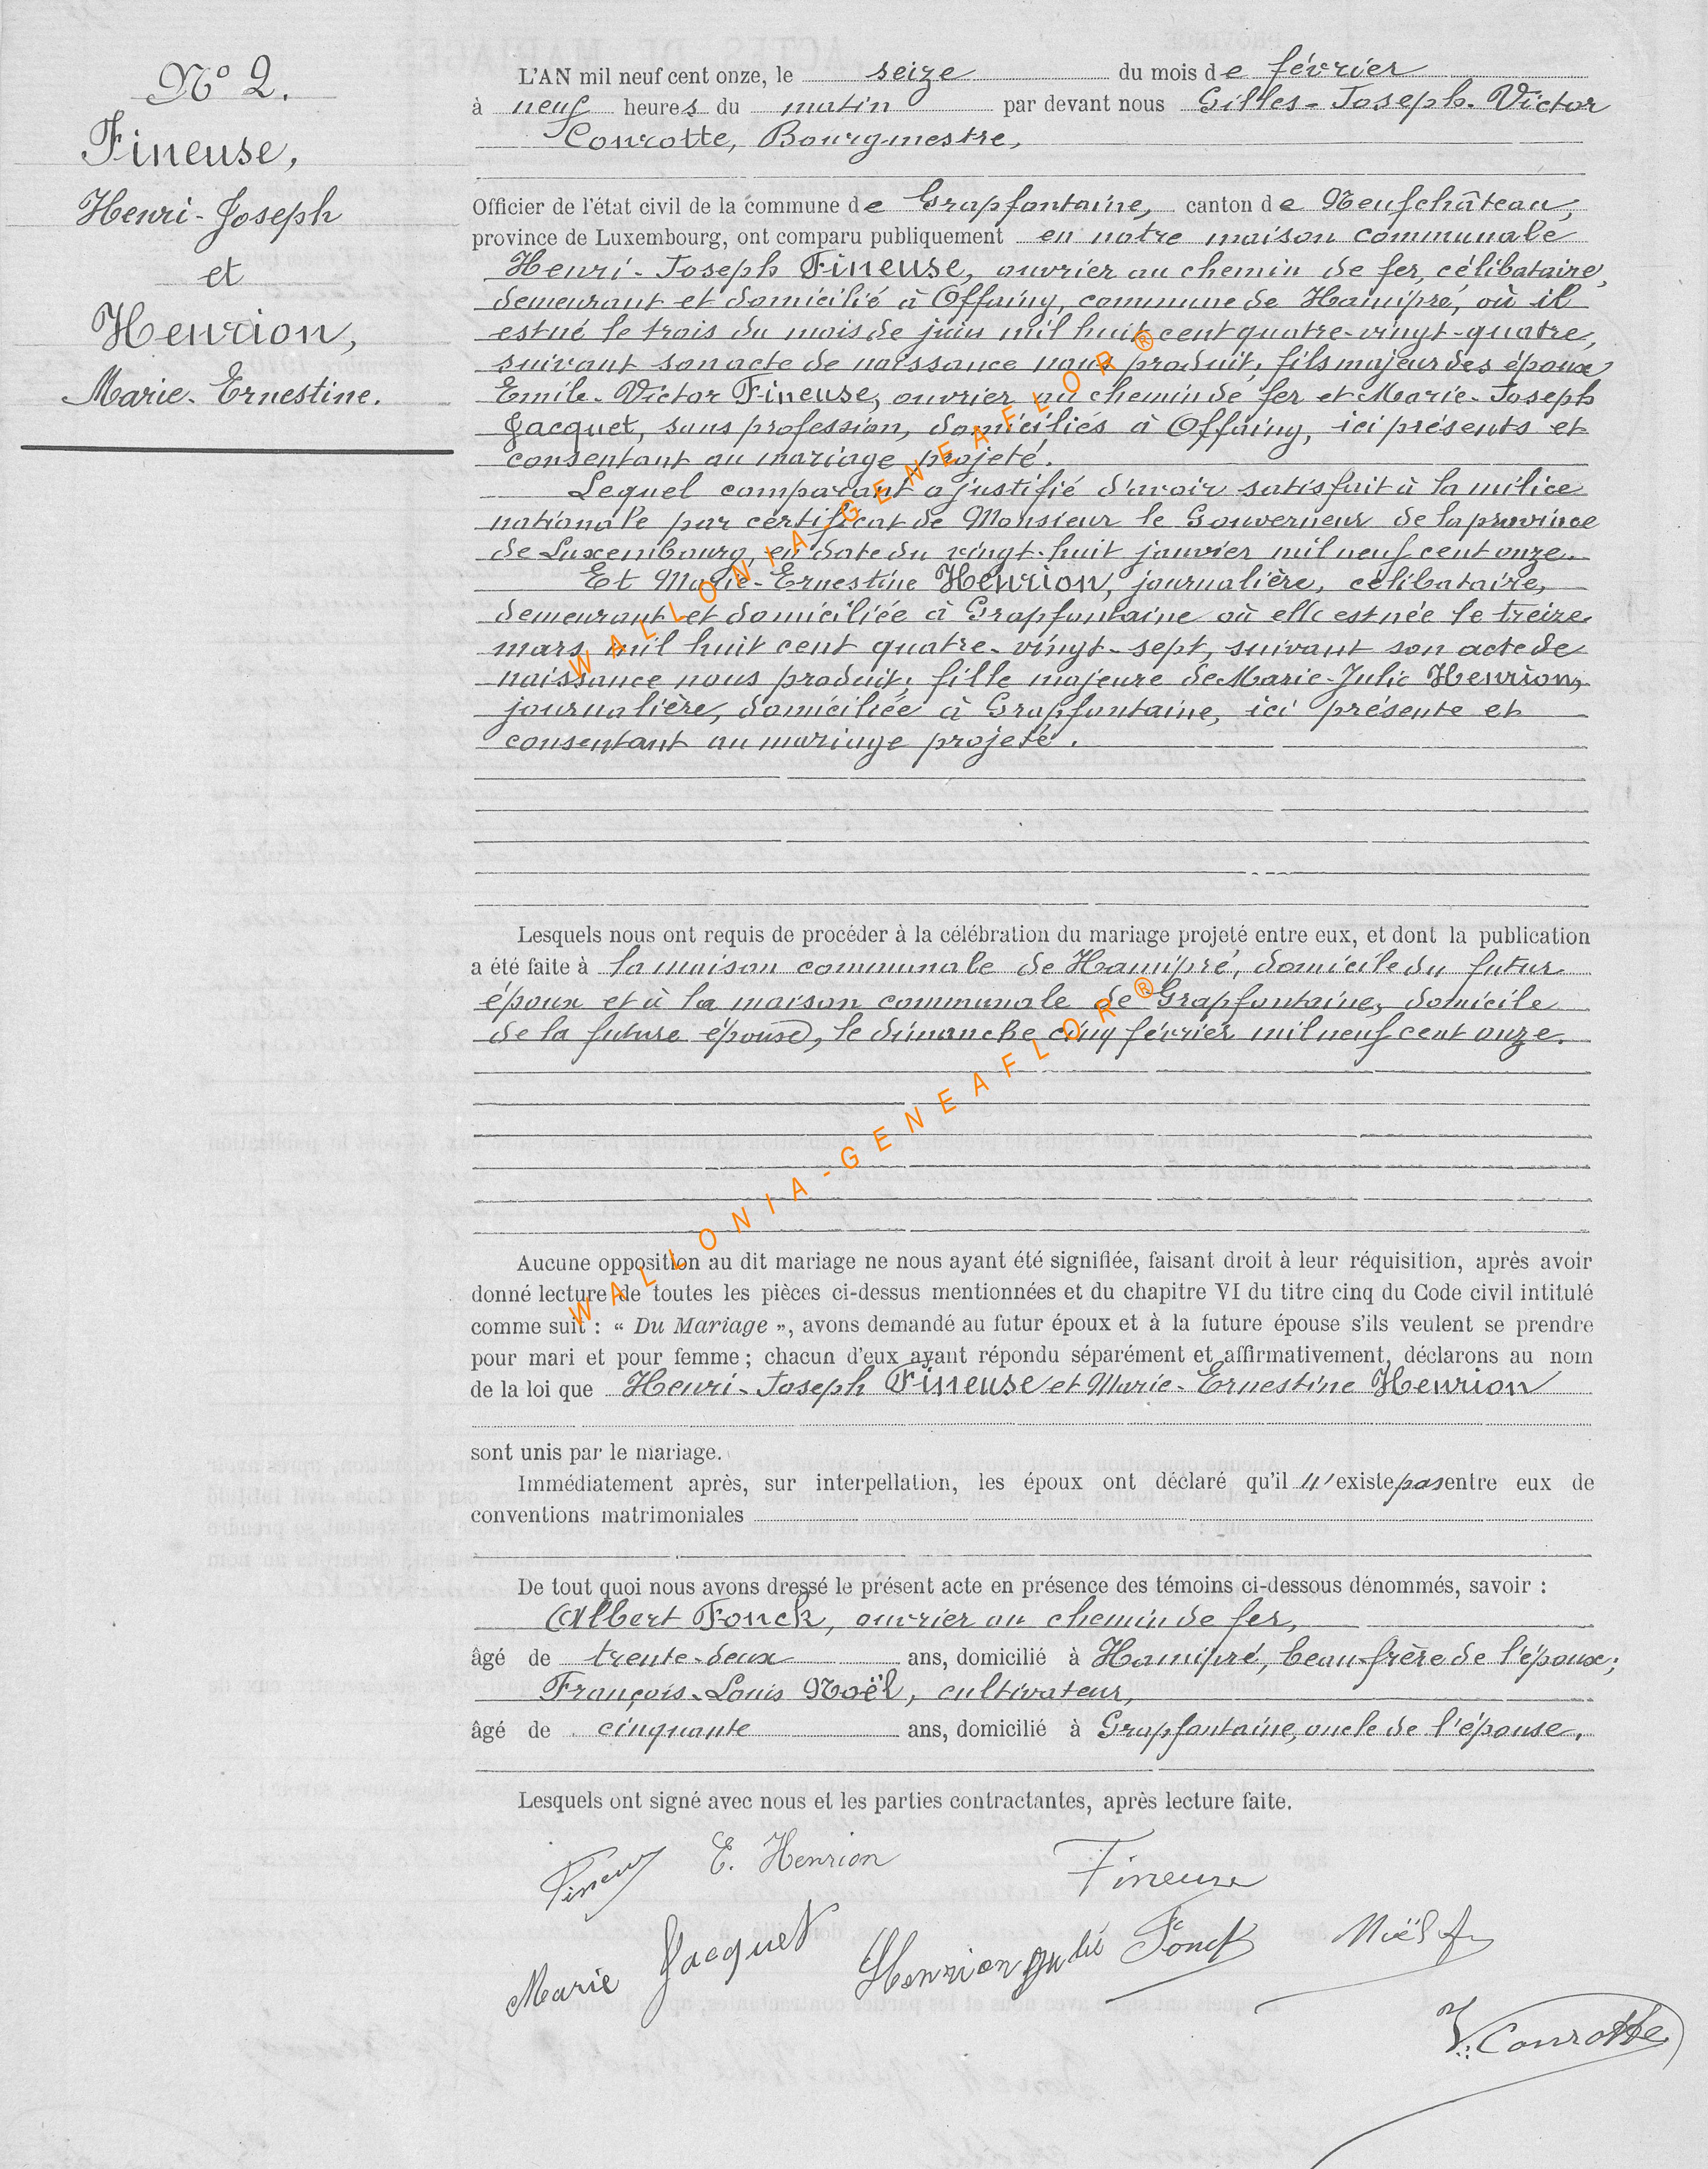 N° 2.
Fineuse,
Henri-Joseph
et
Henrion,
Marie-Ernestine.
L'AN mil neuf cent onze, le seize du mois de février
à neuf heures du matin par devant nous Gilles-Joseph-Victor
Conrotte, Bourgmestre,
Officier de l'état civil de la commune de Grapfontaine, canton de Neufchâteau,
province de Luxembourg, ont comparu publiquement en notre maison communale
Henri-Joseph Fineuse, ouvrier au chemin de fer, célibataire,
demeurant et domicilié à Offaing, commune de Hamipré, où il
est né le trois du mois de juin mil huit cent quatre-vingt-quatre,
suivant son acte de naissance nous produit, fils majeur des époux
Emile-Victor Fineuse, ouvrier au chemin de fer et Marie-Joseph
Jacquet, sans profession, domiciliés à Offaing, ici présents et
consentant au mariage projeté.
Lequel comparant a justifié d'avoir satisfait à la milice
nationale par certificat de Monsieur le Gouverneur de la province
de Luxembourg, en date du vingt-huit janvier mil neuf cent onze.
Et Marie-Ernestine Henrion, journalière, célibataire,
demeurant et domiciliée à Grapfontaine où elle est née le treize
mars mil huit cent quatre-vingt-sept, suivant son acte de
naissance nous produit, fille majeure de Marie-Julie Henrion,
journalière, domiciliée à Grapfontaine, ici présente et
consentant au mariage projeté.
WALLONIA-GENEAFLOR®
Lesquels nous ont requis de procéder à la célébration du mariage projeté entre eux, et dont la publication
a été faite à la maison communale de Hamipré, domicile du futur
époux et à la maison communale de Grapfontaine, domicile
de la future épouse, le dimanche cinq février mil neuf cent onze.
WALLONIA-GENEAFLOR®
Aucune opposition au dit mariage ne nous ayant été signifiée, faisant droit à leur réquisition, après avoir
donné lecture de toutes les pièces ci-dessus mentionnées et du chapitre VI du titre cinq du Code civil intitulé
comme suit : « Du Mariage », avons demandé au futur époux et à la future épouse s'ils veulent se prendre
pour mari et pour femme ; chacun d'eux ayant répondu séparément et affirmativement, déclarons au nom
de la loi que Henri-Joseph Fineuse et Marie-Ernestine Henrion
sont unis par le mariage.
Immédiatement après, sur interpellation, les époux ont déclaré qu'il n'existe pas entre eux de
conventions matrimoniales
De tout quoi nous avons dressé le présent acte en présence des témoins ci-dessous dénommés, savoir :
Albert Fonck, ouvrier au chemin de fer,
âgé de trente-deux ans, domicilié à Hamipré, beau-frère de l'époux ;
François-Louis Noël, cultivateur,
âgé de cinquante ans, domicilié à Grapfontaine, oncle de l'épouse.
Lesquels ont signé avec nous et les parties contractantes, après lecture faite.
E. Henrion Fineuse
Marie Jacquet Henrion Julie Fonck Noël
V. Conrotte